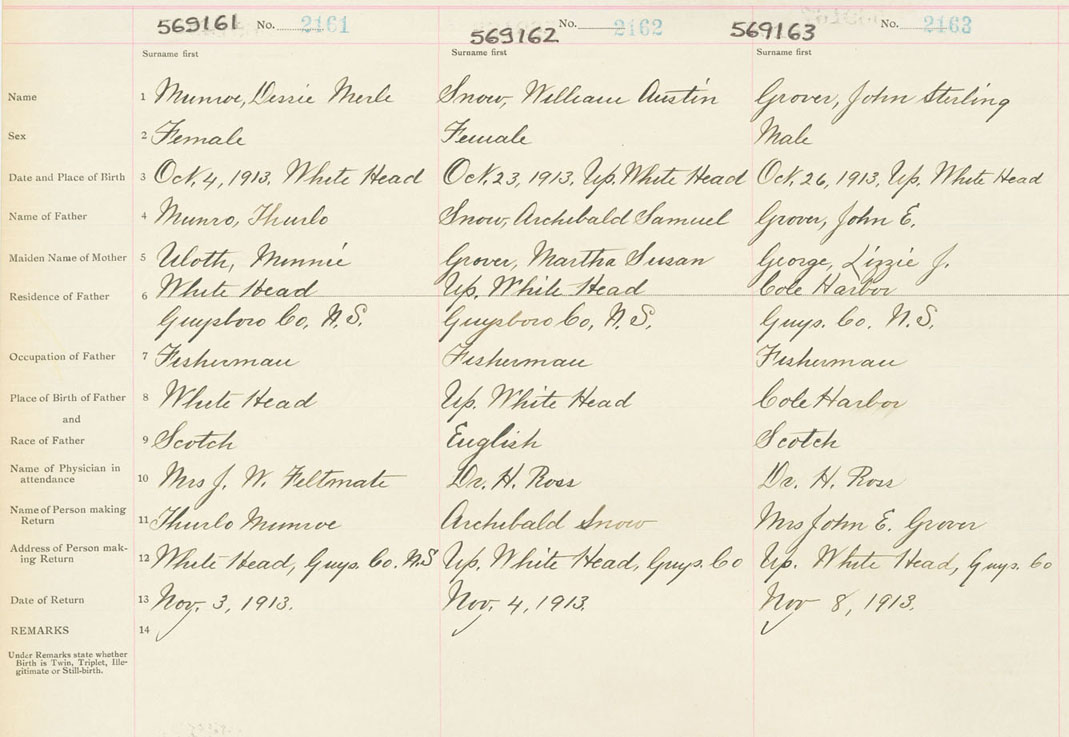 569161 No. 2161 569162 No. 2162 569163 No. 2163
Surname first Surname first Surname first
Name 1 Munroe, Dessie Merle Snow, William Austin Grover, John Sterling
Sex 2 Female Female Male
Date and Place of Birth 3 Oct. 4, 1913. White Head Oct. 23, 1913. Up. White Head Oct. 26, 1913, Up. White Head
Name of Father 4 Munro, Thurlo Snow, Archibald Samuel Grover, John E.
Maiden Name of Mother 5 Uloth, Minnie Grover, Martha Susan George, Lizzie J.
Residence of Father 6 White Head Up. White Head Cole Harbor
Guysboro Co, N.S. Guysboro Co, N.S. Guys. Co. N.S.
Occupation of Father 7 Fisherman Fisherman Fisherman
Place of Birth of Father 8 White Head Up. White Head Cole Harbor
and
Race of Father 9 Scotch English Scotch
Name of Physician in
attendance 10 Mrs J. W. Feltmate Dr. H. Ross Dr. H. Ross
Name of Person making
Return 11 Thurlo Munroe Archibald Snow Mrs John E. Grover
Address of Person mak-
ing Return 12 White Head, Guys. Co. N.S Up. White Head, Guys. Co Up. White Head, Guys. Co
Date of Return 13 Nov. 3, 1913. Nov. 4, 1913. Nov 8, 1913.
REMARKS 14
Under Remarks state whether
Birth is Twin, Triplet, Ille-
gitimate or Still-birth.